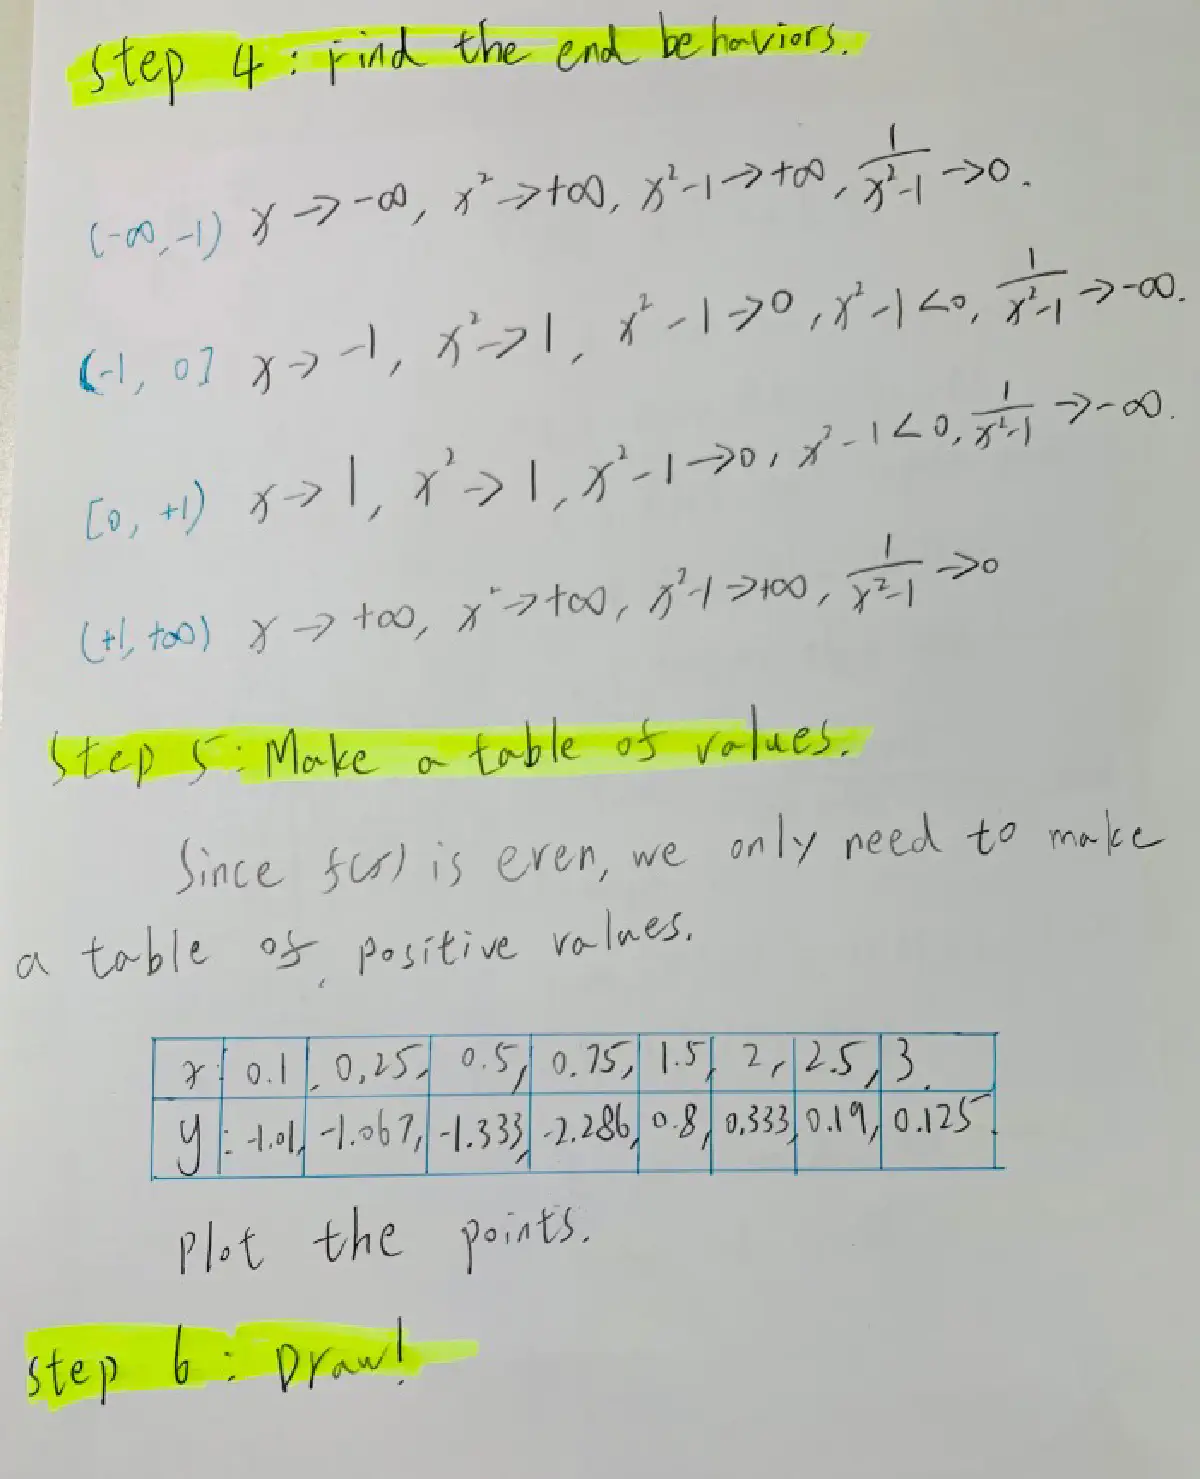 Step 4: Find the end behaviors.
(-∞, -1) x → -∞, x² → +∞, x²-1 → +∞, 1/(x²-1) → 0.
(-1, 0] x → -1, x² → 1, x²-1 → 0, x²-1 < 0, 1/(x²-1) → -∞.
[0, +1) x → 1, x² → 1, x²-1 → 0, x²-1 < 0, 1/(x²-1) → -∞.
(+1, +∞) x → +∞, x² → +∞, x²-1 → +∞, 1/(x²-1) → 0
Step 5: Make a table of values.
Since f(x) is even, we only need to make
a table of positive values.
x: 0.1, 0.25, 0.5, 0.75, 1.5, 2, 2.5, 3.
y: -1.01, -1.067, -1.333, -2.286, 0.8, 0.333, 0.19, 0.125.
Plot the points.
Step 6: Draw!